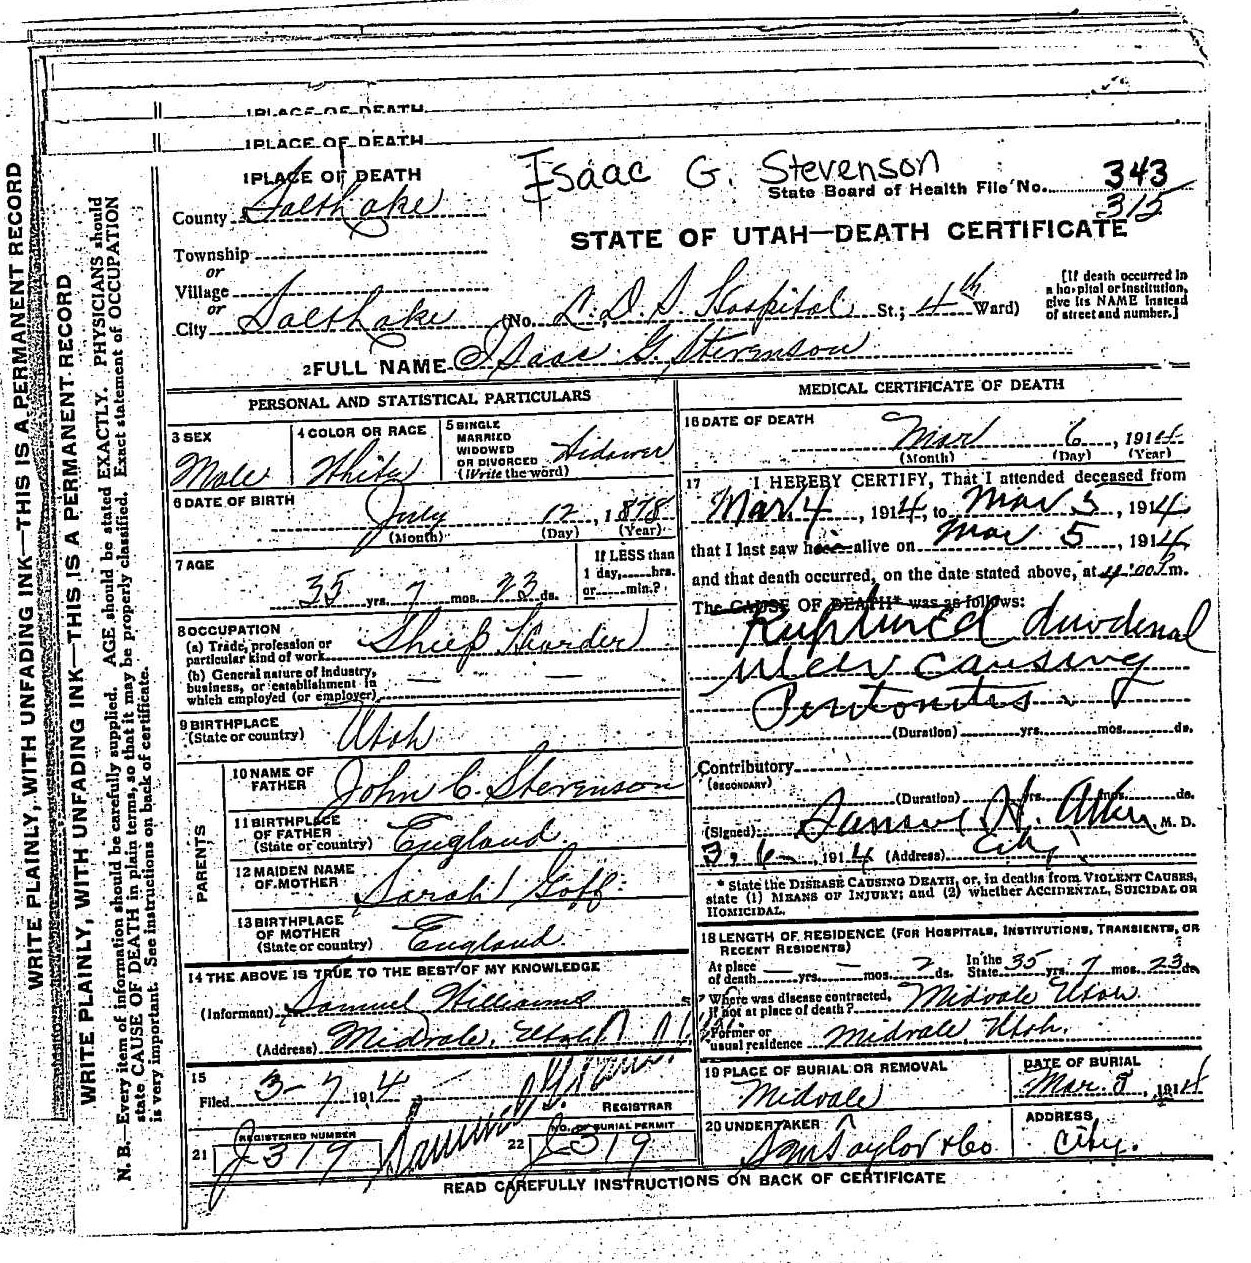 WRITE PLAINLY, WITH UNFADING INK—THIS IS A PERMANENT RECORD
WRITE PLAINLY, WITH UNFADING INK—THIS IS A PERMANENT RECORD
N. B.—Every item of information should be carefully supplied. AGE should be stated EXACTLY. PHYSICIANS should
state CAUSE OF DEATH in plain terms, so that it may be properly classified. Exact statement of OCCUPATION
is very important. See instructions on back of certificate.
1 PLACE OF DEATH
1 PLACE OF DEATH
1 PLACE OF DEATH
Isaac G. Stevenson
State Board of Health File No. 343
315
County Salt Lake
STATE OF UTAH—DEATH CERTIFICATE
Township
or
Village
or
City Salt Lake (No. L. D. S. Hospital St.; 4th Ward)
[If death occurred in
a hospital or institution,
give its NAME instead
of street and number.]
2 FULL NAME Isaac G. Stevenson
PERSONAL AND STATISTICAL PARTICULARS
3 SEX
Male
4 COLOR OR RACE
White
5 SINGLE
MARRIED
WIDOWED
OR DIVORCED
(Write the word)
Widower
6 DATE OF BIRTH
July 12, 1878
(Month) (Day) (Year)
7 AGE
35 yrs. 7 mos. 23 ds.
If LESS than
1 day, hrs.
or min.?
8 OCCUPATION
(a) Trade, profession or
particular kind of work Sheep Hearder
(b) General nature of industry,
business, or establishment in
which employed (or employer) — —
9 BIRTHPLACE
(State or country) Utah
PARENTS
10 NAME OF
FATHER John C. Stevenson
11 BIRTHPLACE
OF FATHER
(State or country) England
12 MAIDEN NAME
OF MOTHER Sarah Goff
13 BIRTHPLACE
OF MOTHER
(State or country) England
14 THE ABOVE IS TRUE TO THE BEST OF MY KNOWLEDGE
(Informant) Samuel Williams
(Address) Midvale, Utah
15
Filed 3-7 1914
REGISTRAR
21
REGISTERED NUMBER
J 319
22
NO. OF BURIAL PERMIT
J 319
MEDICAL CERTIFICATE OF DEATH
16 DATE OF DEATH
Mar 6, 1914
(Month) (Day) (Year)
17 I HEREBY CERTIFY, That I attended deceased from
Mar. 4, 1914, to Mar 5, 1914
that I last saw him alive on Mar 5, 1914
and that death occurred, on the date stated above, at 4:00 P m.
The CAUSE OF DEATH* was as follows:
Ruptured duodenal
ulcer causing
Peritonitis
(Duration) yrs. mos. ds.
Contributory
(SECONDARY)
(Duration) yrs. mos. ds.
(Signed) H. Allen M. D.
3, 6 1914 (Address) City
* State the DISEASE CAUSING DEATH, or, in deaths from VIOLENT CAUSES,
state (1) MEANS OF INJURY; and (2) whether ACCIDENTAL, SUICIDAL OR
HOMICIDAL.
18 LENGTH OF RESIDENCE (FOR HOSPITALS, INSTITUTIONS, TRANSIENTS, OR
RECENT RESIDENTS)
At place
of death — yrs. — mos. 2 ds. In the
State 35 yrs. 7 mos. 23 ds.
Where was disease contracted,
if not at place of death? Midvale Utah
Former or
usual residence Midvale, Utah.
19 PLACE OF BURIAL OR REMOVAL
Midvale
DATE OF BURIAL
Mar. 8, 1914
20 UNDERTAKER
S M Taylor & Co.
ADDRESS
City.
READ CAREFULLY INSTRUCTIONS ON BACK OF CERTIFICATE